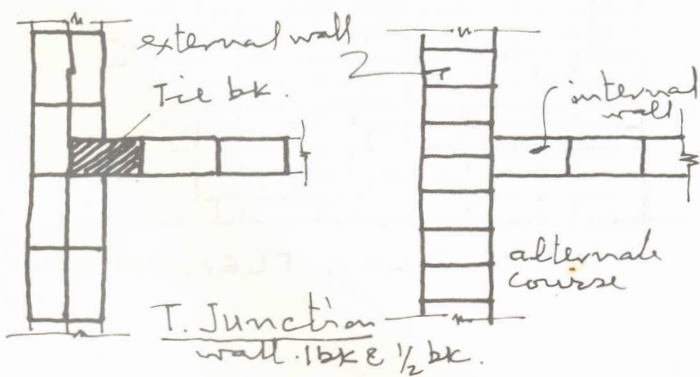 external wall
Tie bk.
internal
wall
alternate
course
T. Junction
wall . 1bk & ½ bk.